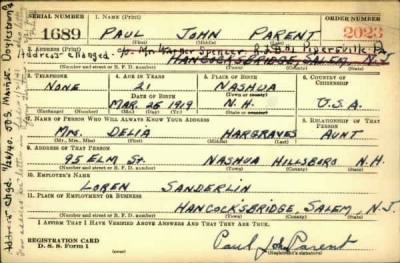 SERIAL NUMBER 1. NAME (Print) ORDER NUMBER
1689 PAUL JOHN PARENT 2023
(First) (Middle) (Last)
2. ADDRESS (Print)
Address Changed. c/o Mr. Spencer R.D.#1 Pipersville Pa.
HANCOCKSBRIDGE, SALEM N.J.
(Number and street or R. F. D. number) (Town) (County) (State)
3. TELEPHONE 4. AGE IN YEARS 5. PLACE OF BIRTH 6. COUNTRY OF CITIZENSHIP
NONE 21 NASHUA
DATE OF BIRTH (Town or county)
MAR. 25 1919 N.H. U.S.A.
(Exchange) (Number) (Mo.) (Day) (Yr.) (State or country)
7. NAME OF PERSON WHO WILL ALWAYS KNOW YOUR ADDRESS 8. RELATIONSHIP OF THAT PERSON
MRS. DELIA HARGRAVES AUNT
(Mr., Mrs., Miss) (First) (Middle) (Last)
9. ADDRESS OF THAT PERSON
95 ELM St. NASHUA HILLSBORO N.H.
(Number and street or R. F. D. number) (Town) (County) (State)
10. EMPLOYER'S NAME
LOREN SANDERLIN
11. PLACE OF EMPLOYMENT OR BUSINESS
HANCOCK'SBRIDGE, SALEM N.J.
(Number and street or R. F. D. number) (Town) (County) (State)
I AFFIRM THAT I HAVE VERIFIED ABOVE ANSWERS AND THAT THEY ARE TRUE.
REGISTRATION CARD
D. S. S. Form 1 Paul John Parent
(Registrant's signature)
Address Chgd. 9/26/40. Main St. Doylestown